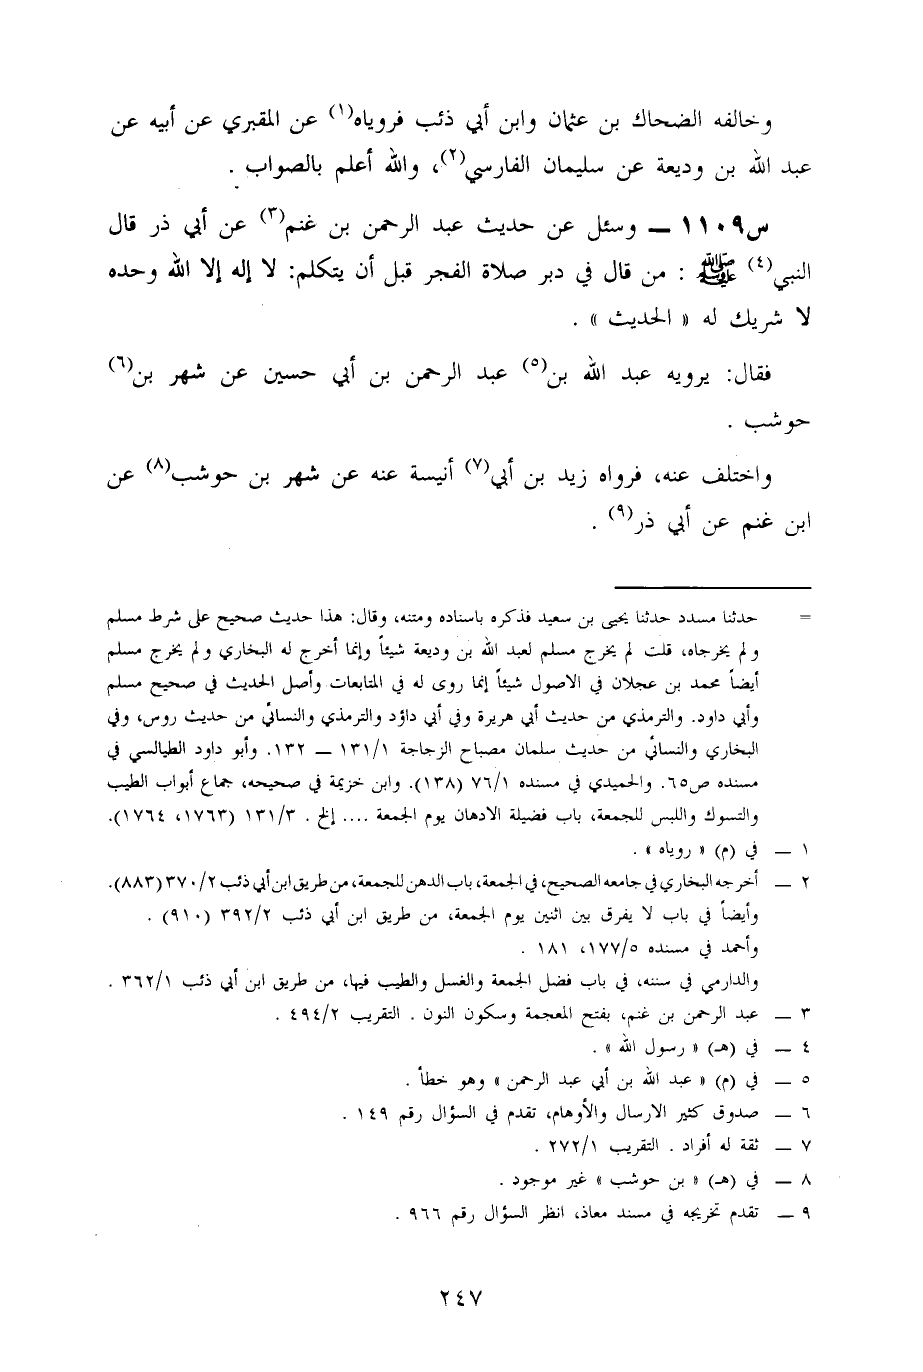 وخالفه الضحاك بن عثمان وابن أبي ذئب فروياه(١) عن المقبري عن أبيه عن
عبد الله بن وديعة عن سليمان الفارسي(٢)، والله أعلم بالصواب .
س١١٠٩ — وسئل عن حديث عبد الرحمن بن غنم(٣) عن أبي ذر قال
النبي(٤) ﷺ : من قال في دبر صلاة الفجر قبل أن يتكلم: لا إله إلا الله وحده
لا شريك له « الحديث » .
فقال: يرويه عبد الله بن(٥) عبد الرحمن بن أبي حسين عن شهر بن(٦)
حوشب .
واختلف عنه، فرواه زيد بن أبي(٧) أنيسة عنه عن شهر بن حوشب(٨) عن
ابن غنم عن أبي ذر(٩) .
= حدثنا مسدد حدثنا يحيى بن سعيد فذكره باسناده ومتنه، وقال: هذا حديث صحيح على شرط مسلم
ولم يخرجاه، قلت لم يخرج مسلم لعبد الله بن وديعة شيئاً وإنما أخرج له البخاري ولم يخرج مسلم
أيضاً محمد بن عجلان في الاصول شيئاً إنما روى له في المتابعات وأصل الحديث في صحيح مسلم
وأبي داود. والترمذي من حديث أبي هريرة وفي أبي داؤد والترمذي والنسائي من حديث روس، وفي
البخاري والنسائي من حديث سلمان مصباح الزجاجة ١٣١/١ — ١٣٢. وأبو داود الطيالسي في
مسنده ص٦٥. والحميدي في مسنده ٧٦/١ (١٣٨). وابن خزيمة في صحيحه، جماع أبواب الطيب
والتسوك واللبس للجمعة، باب فضيلة الادهان يوم الجمعة .... إلخ . ١٣١/٣ (١٧٦٣، ١٧٦٤).
١ — في (م) « روياه » .
٢ — أخرجه البخاري في جامعه الصحيح، في الجمعة، باب الدهن للجمعة، من طريق ابن أبي ذئب ٣٧٠/٢ (٨٨٣).
وأيضاً في باب لا يفرق بين اثنين يوم الجمعة، من طريق ابن أبي ذئب ٣٩٢/٢ (٩١٠) .
وأحمد في مسنده ١٧٧/٥، ١٨١ .
والدارمي في سننه، في باب فضل الجمعة والغسل والطيب فيها، من طريق ابن أبي ذئب ٣٦٢/١ .
٣ — عبد الرحمن بن غنم، بفتح المعجمة وسكون النون . التقريب ٤٩٤/٢ .
٤ — في (هـ) « رسول الله » .
٥ — في (م) « عبد الله بن أبي عبد الرحمن » وهو خطأ .
٦ — صدوق كثير الارسال والأوهام، تقدم في السؤال رقم ١٤٩ .
٧ — ثقة له أفراد . التقريب ٢٧٢/١ .
٨ — في (هـ) « بن حوشب » غير موجود .
٩ — تقدم تخريجه في مسند معاذ، انظر السؤال رقم ٩٦٦ .
٢٤٧